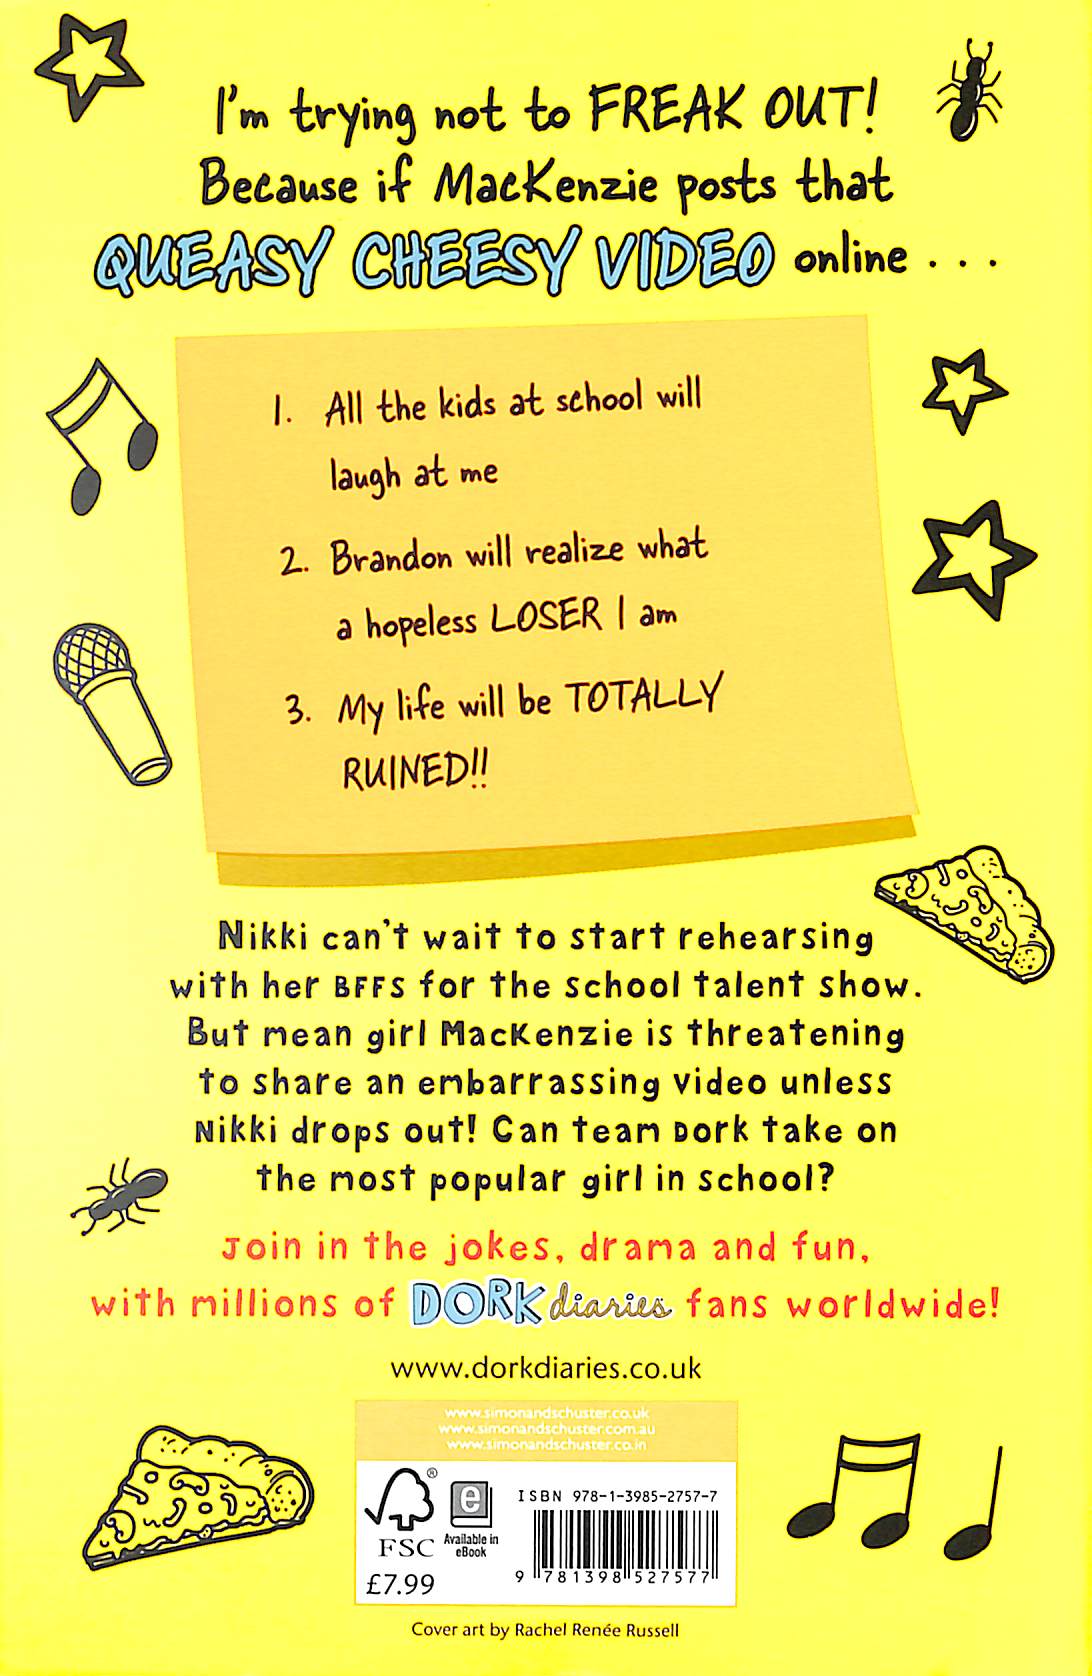 I'm trying not to FREAK OUT!
Because if MacKenzie posts that
QUEASY CHEESY VIDEO online . . .
1. All the kids at school will
laugh at me
2. Brandon will realize what
a hopeless LOSER I am
3. My life will be TOTALLY
RUINED!!
Nikki can't wait to start rehearsing
with her BFFS for the school talent show.
But mean girl MacKenzie is threatening
to share an embarrassing video unless
Nikki drops out! Can team Dork take on
the most popular girl in school?
Join in the jokes, drama and fun,
with millions of DORK diaries fans worldwide!
www.dorkdiaries.co.uk
www.simonandschuster.co.uk
www.simonandschuster.com.au
www.simonandschuster.co.in
®
FSC
e
Available in
eBook
£7.99
ISBN 978-1-3985-2757-7
9 781398 527577
Cover art by Rachel Renée Russell